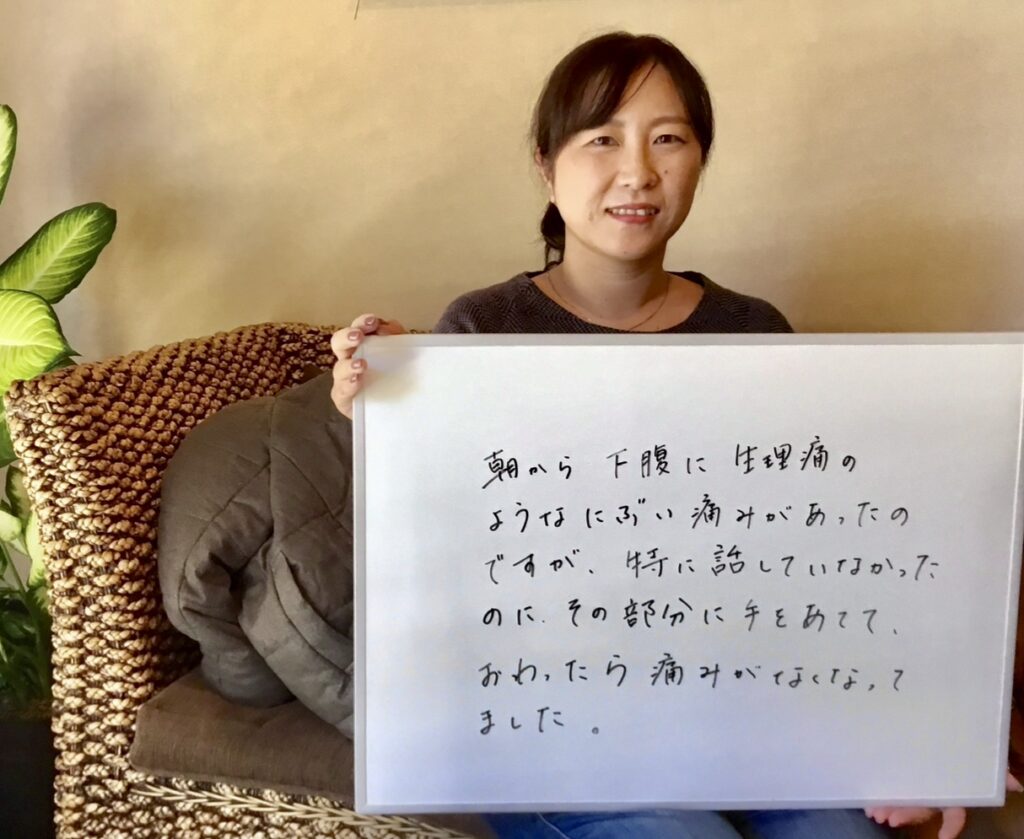 朝から 下腹に 生理痛の
ようなにぶい痛みがあったの
ですが、特に話していなかった
のに、その部分に手をあてて、
おわったら痛みがなくなって
ました。